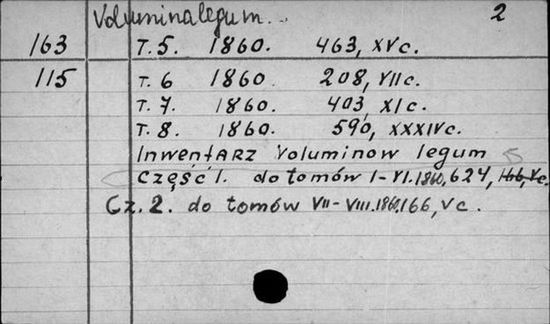 Volumina legum. 2
163 T. 5. 1860. 463, XV c.
115 T. 6 1860 208, VII c.
T. 7. 1860. 403, XI c.
T. 8. 1860. 590, XXXIV c.
Inwentarz Voluminow legum
Część I. do tomów I-VI. 1860, 624, 166, V c.
Cz. 2. do tomów VII-VIII. 1860, 166, V c.